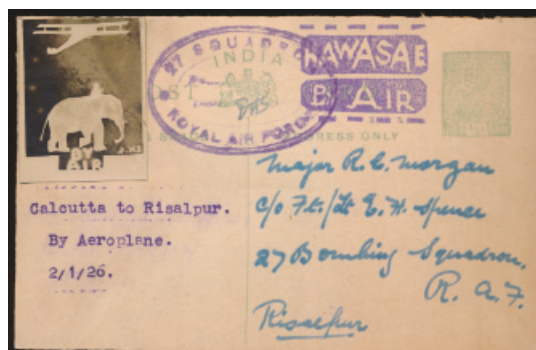 BY
AIR
27 SQUADRON
ROYAL AIR FORCE
INDIA
HAWASAE
BY AIR
ADDRESS ONLY
Calcutta to Risalpur.
By Aeroplane.
2/1/26.
Major R. C. Morgan
c/o Ft./Lt E. H. Spence
27 Bombing Squadron,
R. A. F.
Risalpur